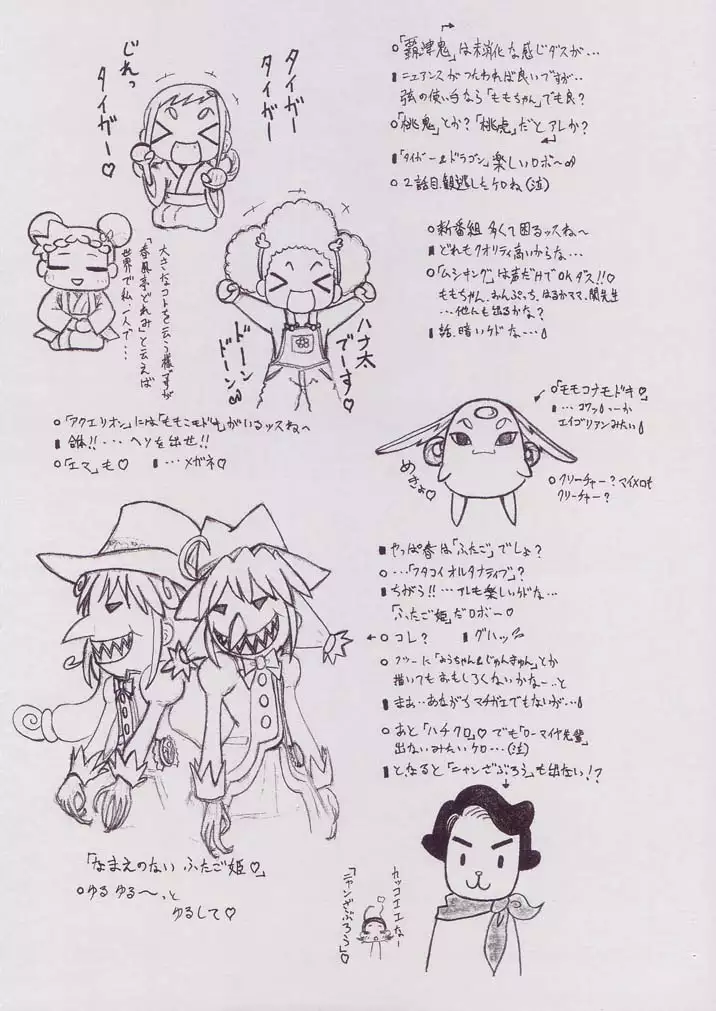 じれっ
タイガー♡
タイガー
タイガー
大きなコトを云う様ですが
「春風亭どれみ」と云えば
世界で私一人で…
ハナ太
でーす♡
ドーン
ドーン
○「アクエリオン」には「ももこモドキ」がいるッスね〜
▮合体!!…ヘソを出せ!!
○「エマ」も♡ ▮…メガネ♡
「なまえのない ふたご姫♡」
○ゆるゆる〜っと
ゆるして♡
○「覇津鬼」は未消化な感じダスが…
▮ニュアンスがつたわれば良いですが…
弦の使い手なら「ももちゃん」でも良?
○「桃鬼」とか?「桃虎」だとアレか?
▮「タイガー&ドラゴン」楽しいロボ〜
○2話目観逃したケロね(泣)
○新番組 多くて困るッスね〜
▮どれもクオリティ高いからな…
○「ムシキング」は声だけでOKダス!!
ももちゃん、おんぷっち、はるかママ、関先生
…他にも出るかな?
▮話、暗いケドな…
○「モモコナモドキ♡」
▮…コワッ
エイゴリアンみたい
めきょ♡
○クリーチャー?マイメロも
クリーチャー?
▮やっぱ春は「ふたご」でしょ?
○…「フタコイ オルタナティブ」?
▮ちがう!!…アレも楽しいケドな…
「ふたご姫」だロボー♡
○コレ? ▮グハッ
○フツーに「みうちゃん&じゅんきゅん」とか
描いてもおもしろくないかなー…と
▮まぁ…あながちマチガエでもないが…
○あと「ハチクロ」♡でも「ローマイヤ先輩」
出ないみたいケロ…(泣)
▮と、なると「ニャンざぶろう」も出ない!?
カッコエエなー
「ニャンざぶろう」♡